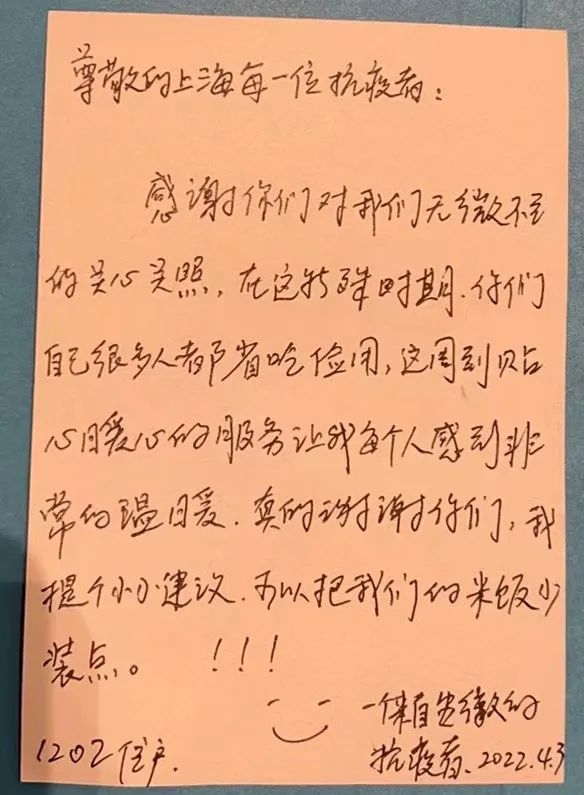 尊敬的上海每一位抗疫者：
感谢你们对我们无微不至
的关心关照，在这特殊时期，你们
自己很多人都省吃俭用，这周到贴
心暖心的服务让我每个人感到非
常的温暖，真的谢谢你们，我
提个小小建议，可以把我们的米饭少
装点。 ！！！
一位来自安徽的
1202住户. 抗疫者，2022.4.3